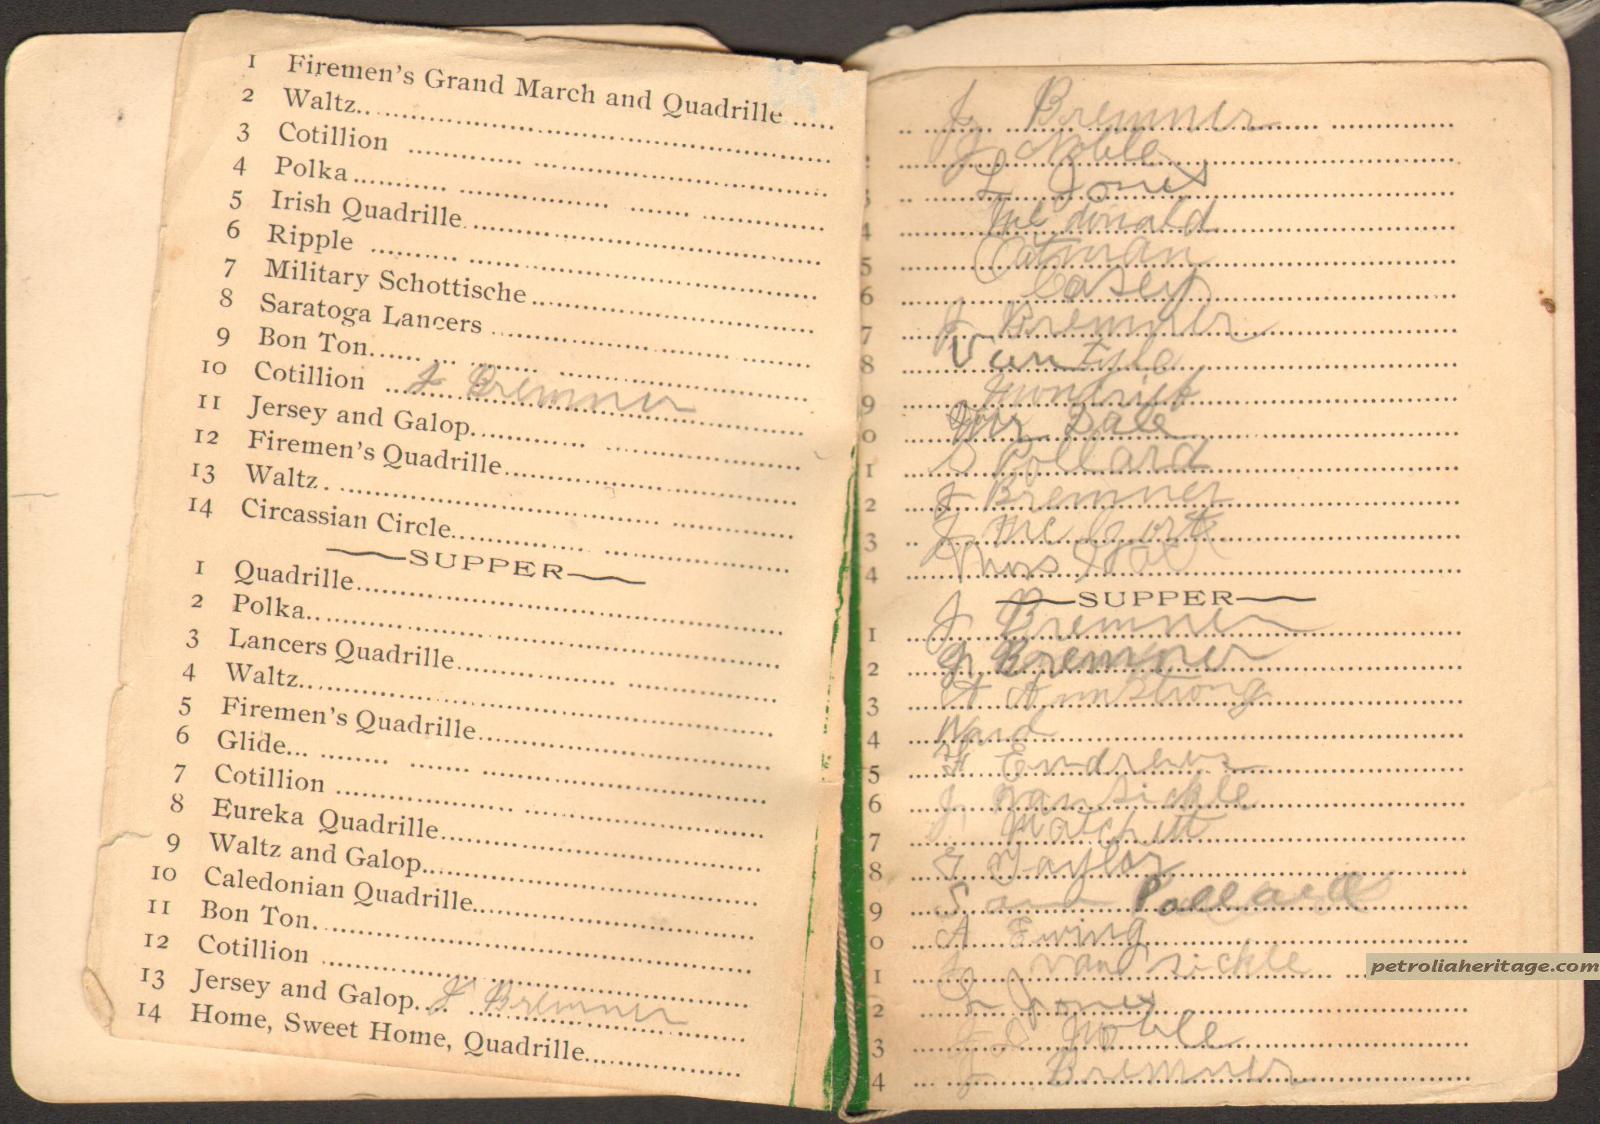 1 Firemen's Grand March and Quadrille .....
2 Waltz..
3 Cotillion
4 Polka
5 Irish Quadrille
6 Ripple
7 Military Schottische
8 Saratoga Lancers
9 Bon Ton
10 Cotillion J Bremner
11 Jersey and Galop
12 Firemen's Quadrille
13 Waltz
14 Circassian Circle
SUPPER
1 Quadrille
2 Polka
3 Lancers Quadrille
4 Waltz
5 Firemen's Quadrille
6 Glide
7 Cotillion
8 Eureka Quadrille
9 Waltz and Galop
10 Caledonian Quadrille
11 Bon Ton
12 Cotillion
13 Jersey and Galop J Bremner
14 Home, Sweet Home, Quadrille
J Bremner
J Noble
3 L Jones
4 McDonald
5 Oatman
6 Casey
7 J Bremner
8
9
0 Dale
1 S Pollard
2 J Bremner
3 J Mc
4 Thos
SUPPER
1 J Bremner
2 J Bremner
3 A Armstrong
4 Ward
5 Endrews
6 J Vansickle
7 Matchett
8 G Taylor
9 Sam Pollard
0 A Ewing
1 J Van Sickle
2 L Jones
3 J Noble
4 J Bremner
petroliaheritage.com